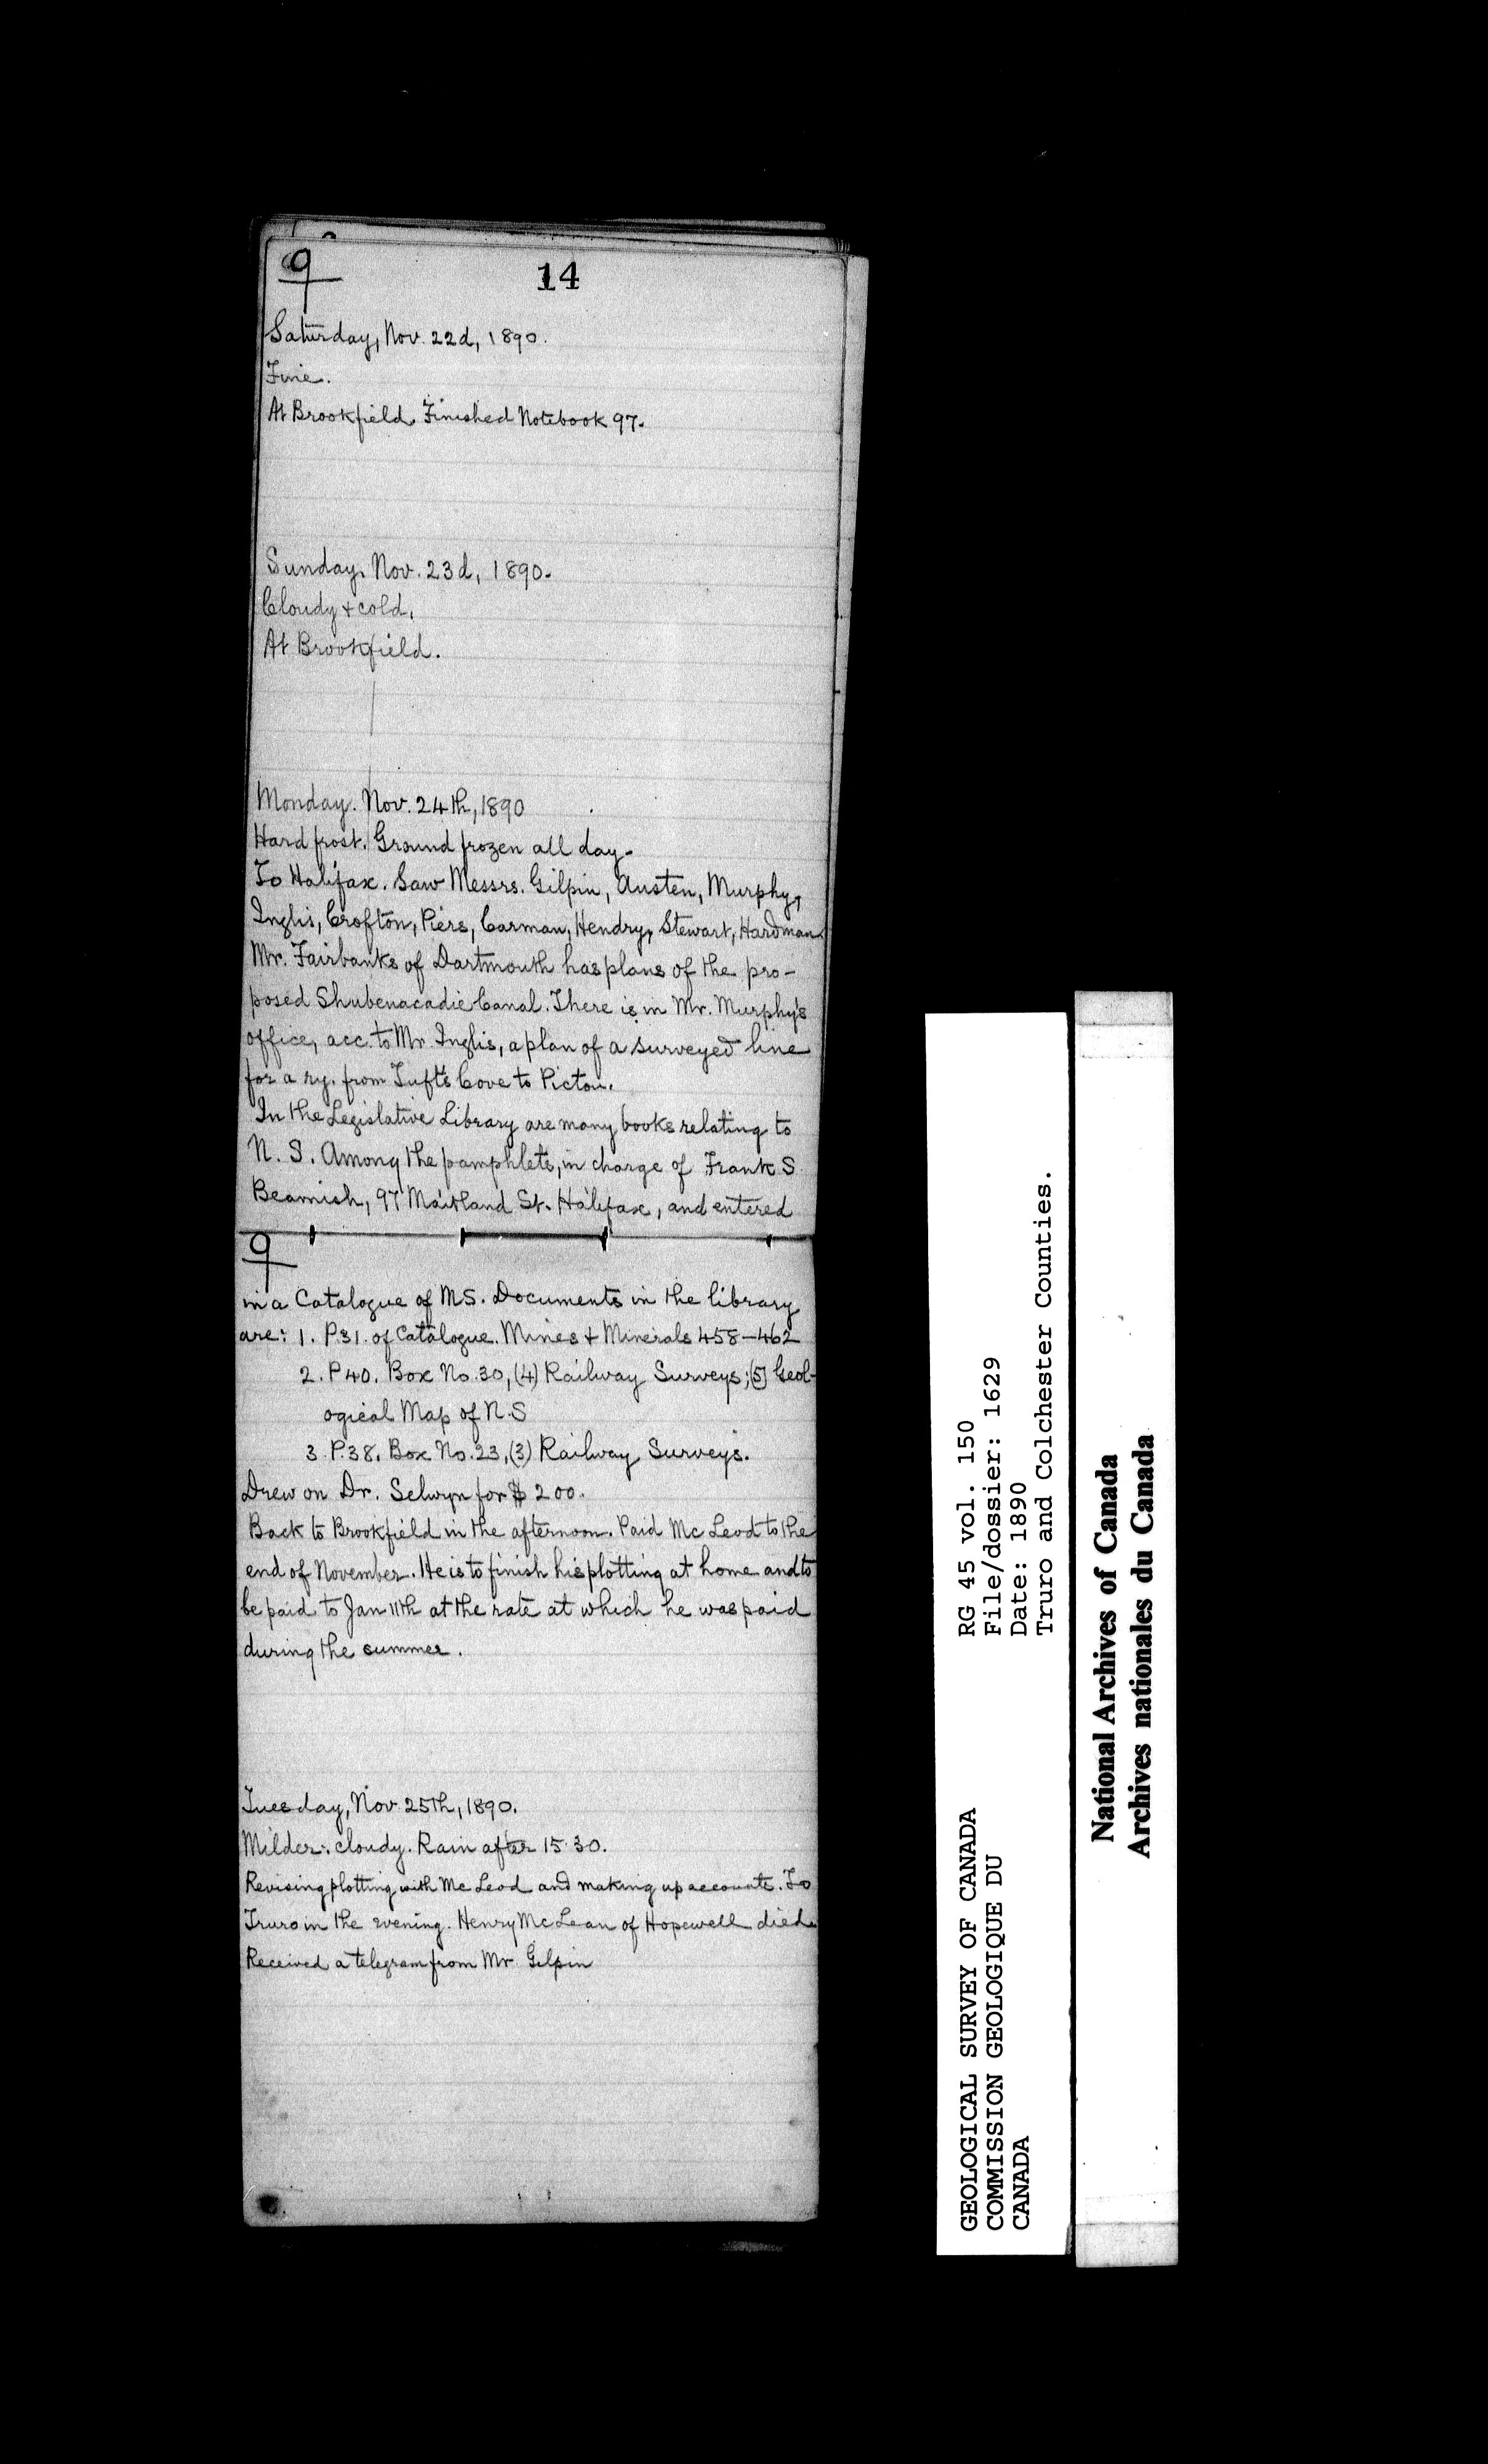 9
14
Saturday, Nov. 22d, 1890.
Fine.
At Brookfield. Finished Notebook 97.
Sunday. Nov. 23d, 1890.
Cloudy + cold.
At Brookfield.
Monday. Nov. 24th, 1890
Hard frost. Ground frozen all day.
To Halifax. Saw Messrs. Gilpin, Austen, Murphy,
Inglis, Crofton, Piers, Carman, Hendry, Stewart, Hardman.
Mr. Fairbanks of Dartmouth has plans of the pro-
posed Shubenacadie Canal. There is in Mr. Murphy's
office, acc. to Mr. Inglis, a plan of a surveyed line
for a ry. from Tufts Cove to Pictou.
In the Legislative Library are many books relating to
N. S. Among the pamphlets, in charge of Frank S
Beamish, 97 Maitland St. Halifax, and entered
9
in a Catalogue of MS. Documents in the library
are: 1. P31. of Catalogue. Mines + Minerals 458-462
2. P40. Box No. 30, (4) Railway Surveys; (5) Geol-
ogical Map of N.S
3. P.38. Box No. 23, (3) Railway Surveys.
Drew on Dr. Selwyn for $ 200.
Back to Brookfield in the afternoon. Paid McLeod to the
end of November. He is to finish his plotting at home and to
be paid to Jan 11th at the rate at which he was paid
during the summer.
Tuesday, Nov 25th, 1890.
Milder: cloudy. Rain after 15.30.
Revising plotting with McLeod and making up accounts. To
Truro in the evening. Henry McLean of Hopewell died.
Received a telegram from Mr Gilpin
GEOLOGICAL SURVEY OF CANADA
COMMISSION GEOLOGIQUE DU
CANADA
RG 45 vol. 150
File/dossier: 1629
Date: 1890
Truro and Colchester Counties.
National Archives of Canada
Archives nationales du Canada